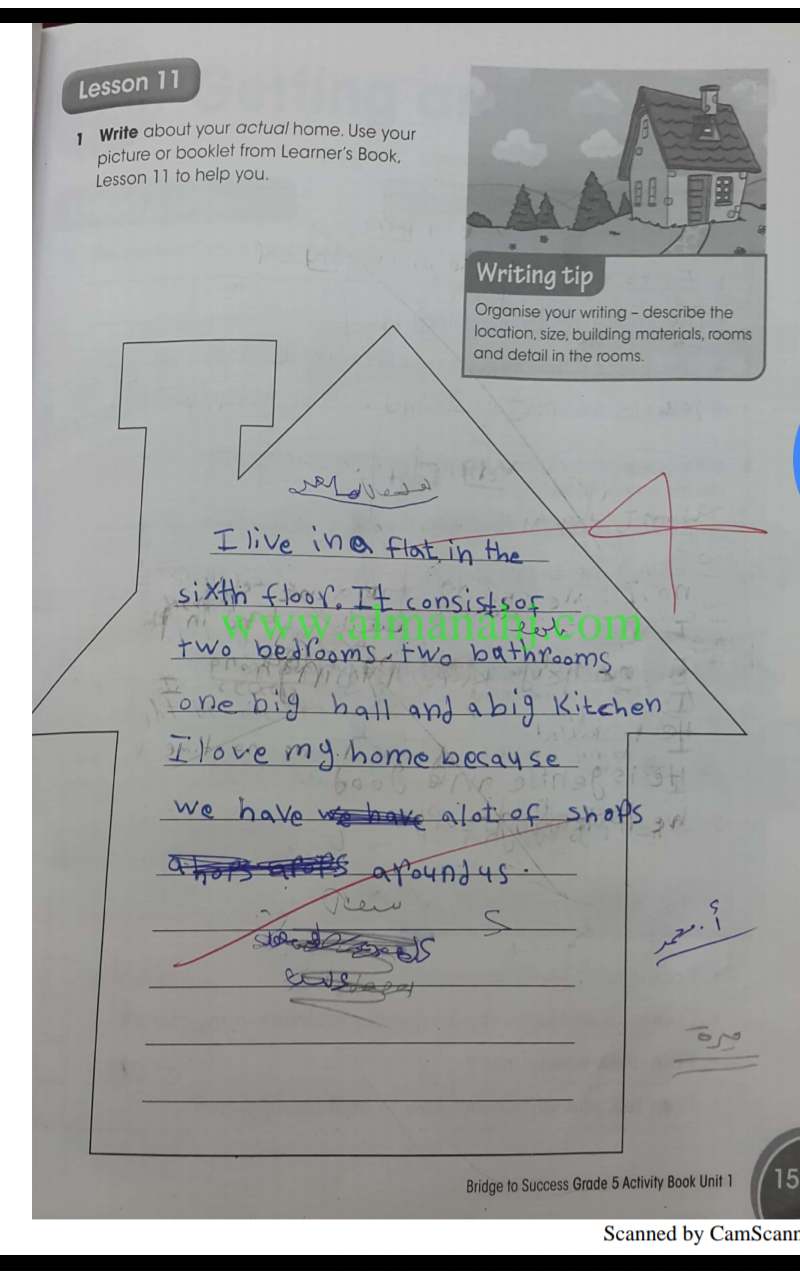 Lesson 11
1 Write about your actual home. Use your
picture or booklet from Learner's Book,
Lesson 11 to help you.
Writing tip
Organise your writing – describe the
location, size, building materials, rooms
and detail in the rooms.
I live in a flat, in the
sixth floor. It consists of
www.almanahj.com
two bedrooms, two bathrooms
one big hall and a big Kitchen
I love my home because
we have we have alot of shops
around us.
أ. محمد
Bridge to Success Grade 5 Activity Book Unit 1
15
Scanned by CamScann